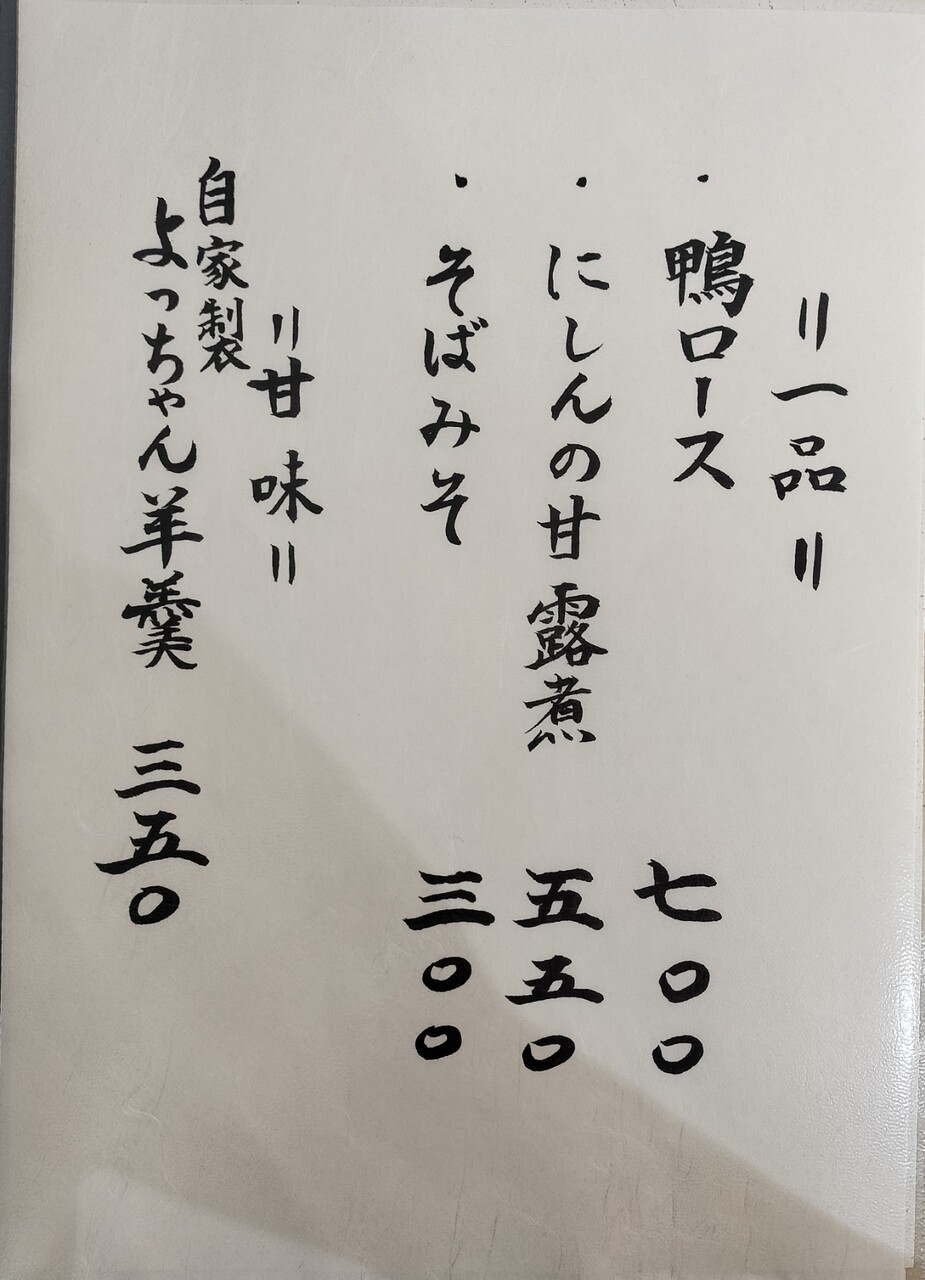 ＝一品＝
・鴨ロース 七〇〇
・にしんの甘露煮 五五〇
・そばみそ 三〇〇
＝甘味＝
自家製
よっちゃん羊羹 三五〇